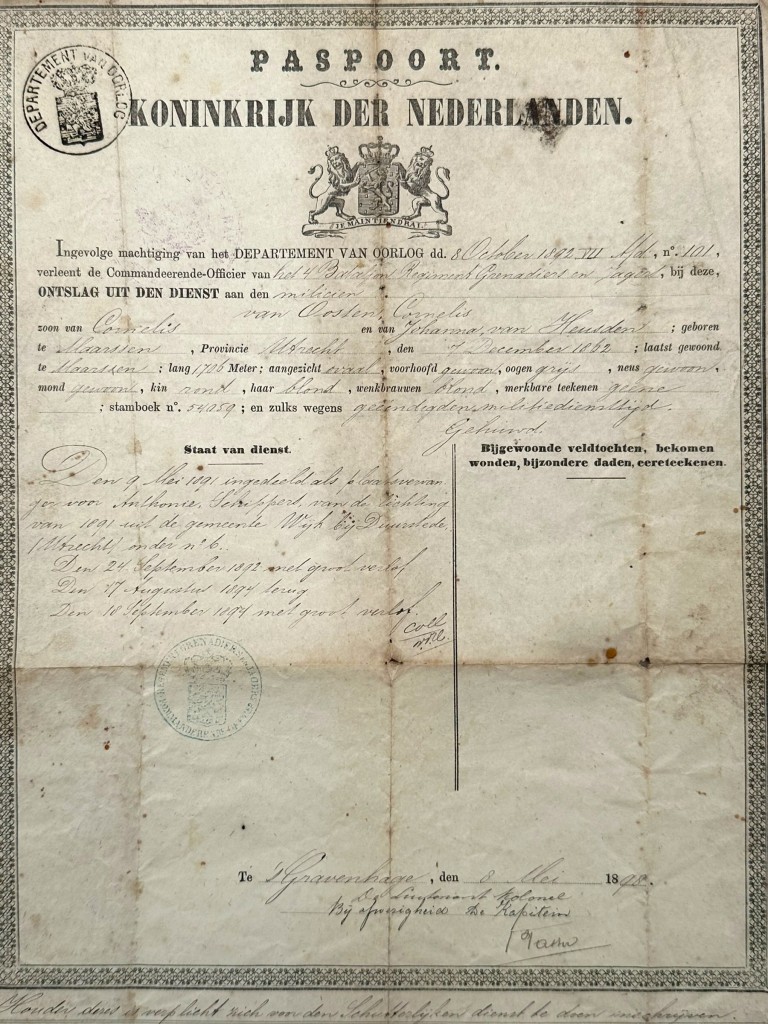 DEPARTEMENT VAN OORLOG
PASPOORT.
KONINKRIJK DER NEDERLANDEN.
JE MAINTIENDRAI
Ingevolge machtiging van het DEPARTEMENT VAN OORLOG dd. 8 October 1892 VII Afd., n°. 101,
verleent de Commandeerende-Officier van het 4e Bataljon Regiment Grenadiers en Jagers, bij deze,
ONTSLAG UIT DEN DIENST aan den milicien
van Oosten, Cornelis
zoon van Cornelis en van Johanna, van Heusden ; geboren
te Maarssen , Provincie Utrecht , den 7 December 1862 ; laatst gewoond
te Maarssen ; lang 1,706 Meter; aangezicht ovaal, voorhoofd gewoon, oogen grijs , neus gewoon,
mond gewoon, kin rond, haar blond, wenkbrauwen blond, merkbare teekenen geene
; stamboek n°. 54959; en zulks wegens geëindigden militiediensttijd.
Gehuwd.
Staat van dienst.
Bijgewoonde veldtochten, bekomen
wonden, bijzondere daden, eereteekenen.
Den 9 Mei 1891 ingedeeld als plaatsvervan
ger voor Anthonie, Schippers, van de lichting
van 1891 uit de gemeente Wijk bij Duurstede
(Utrecht) onder n° 6.
Den 24 September 1892 met groot verlof
Den 17 Augustus 1894 terug
Den 18 September 1894 met groot verlof.
Coll
Te 's Gravenhage, den 8 Mei 1898.
De Luitenant Kolonel
Bij afwezigheid De Kapitein
Houder dezes is verplicht zich voor den Schutterlijken dienst te doen inschrijven.